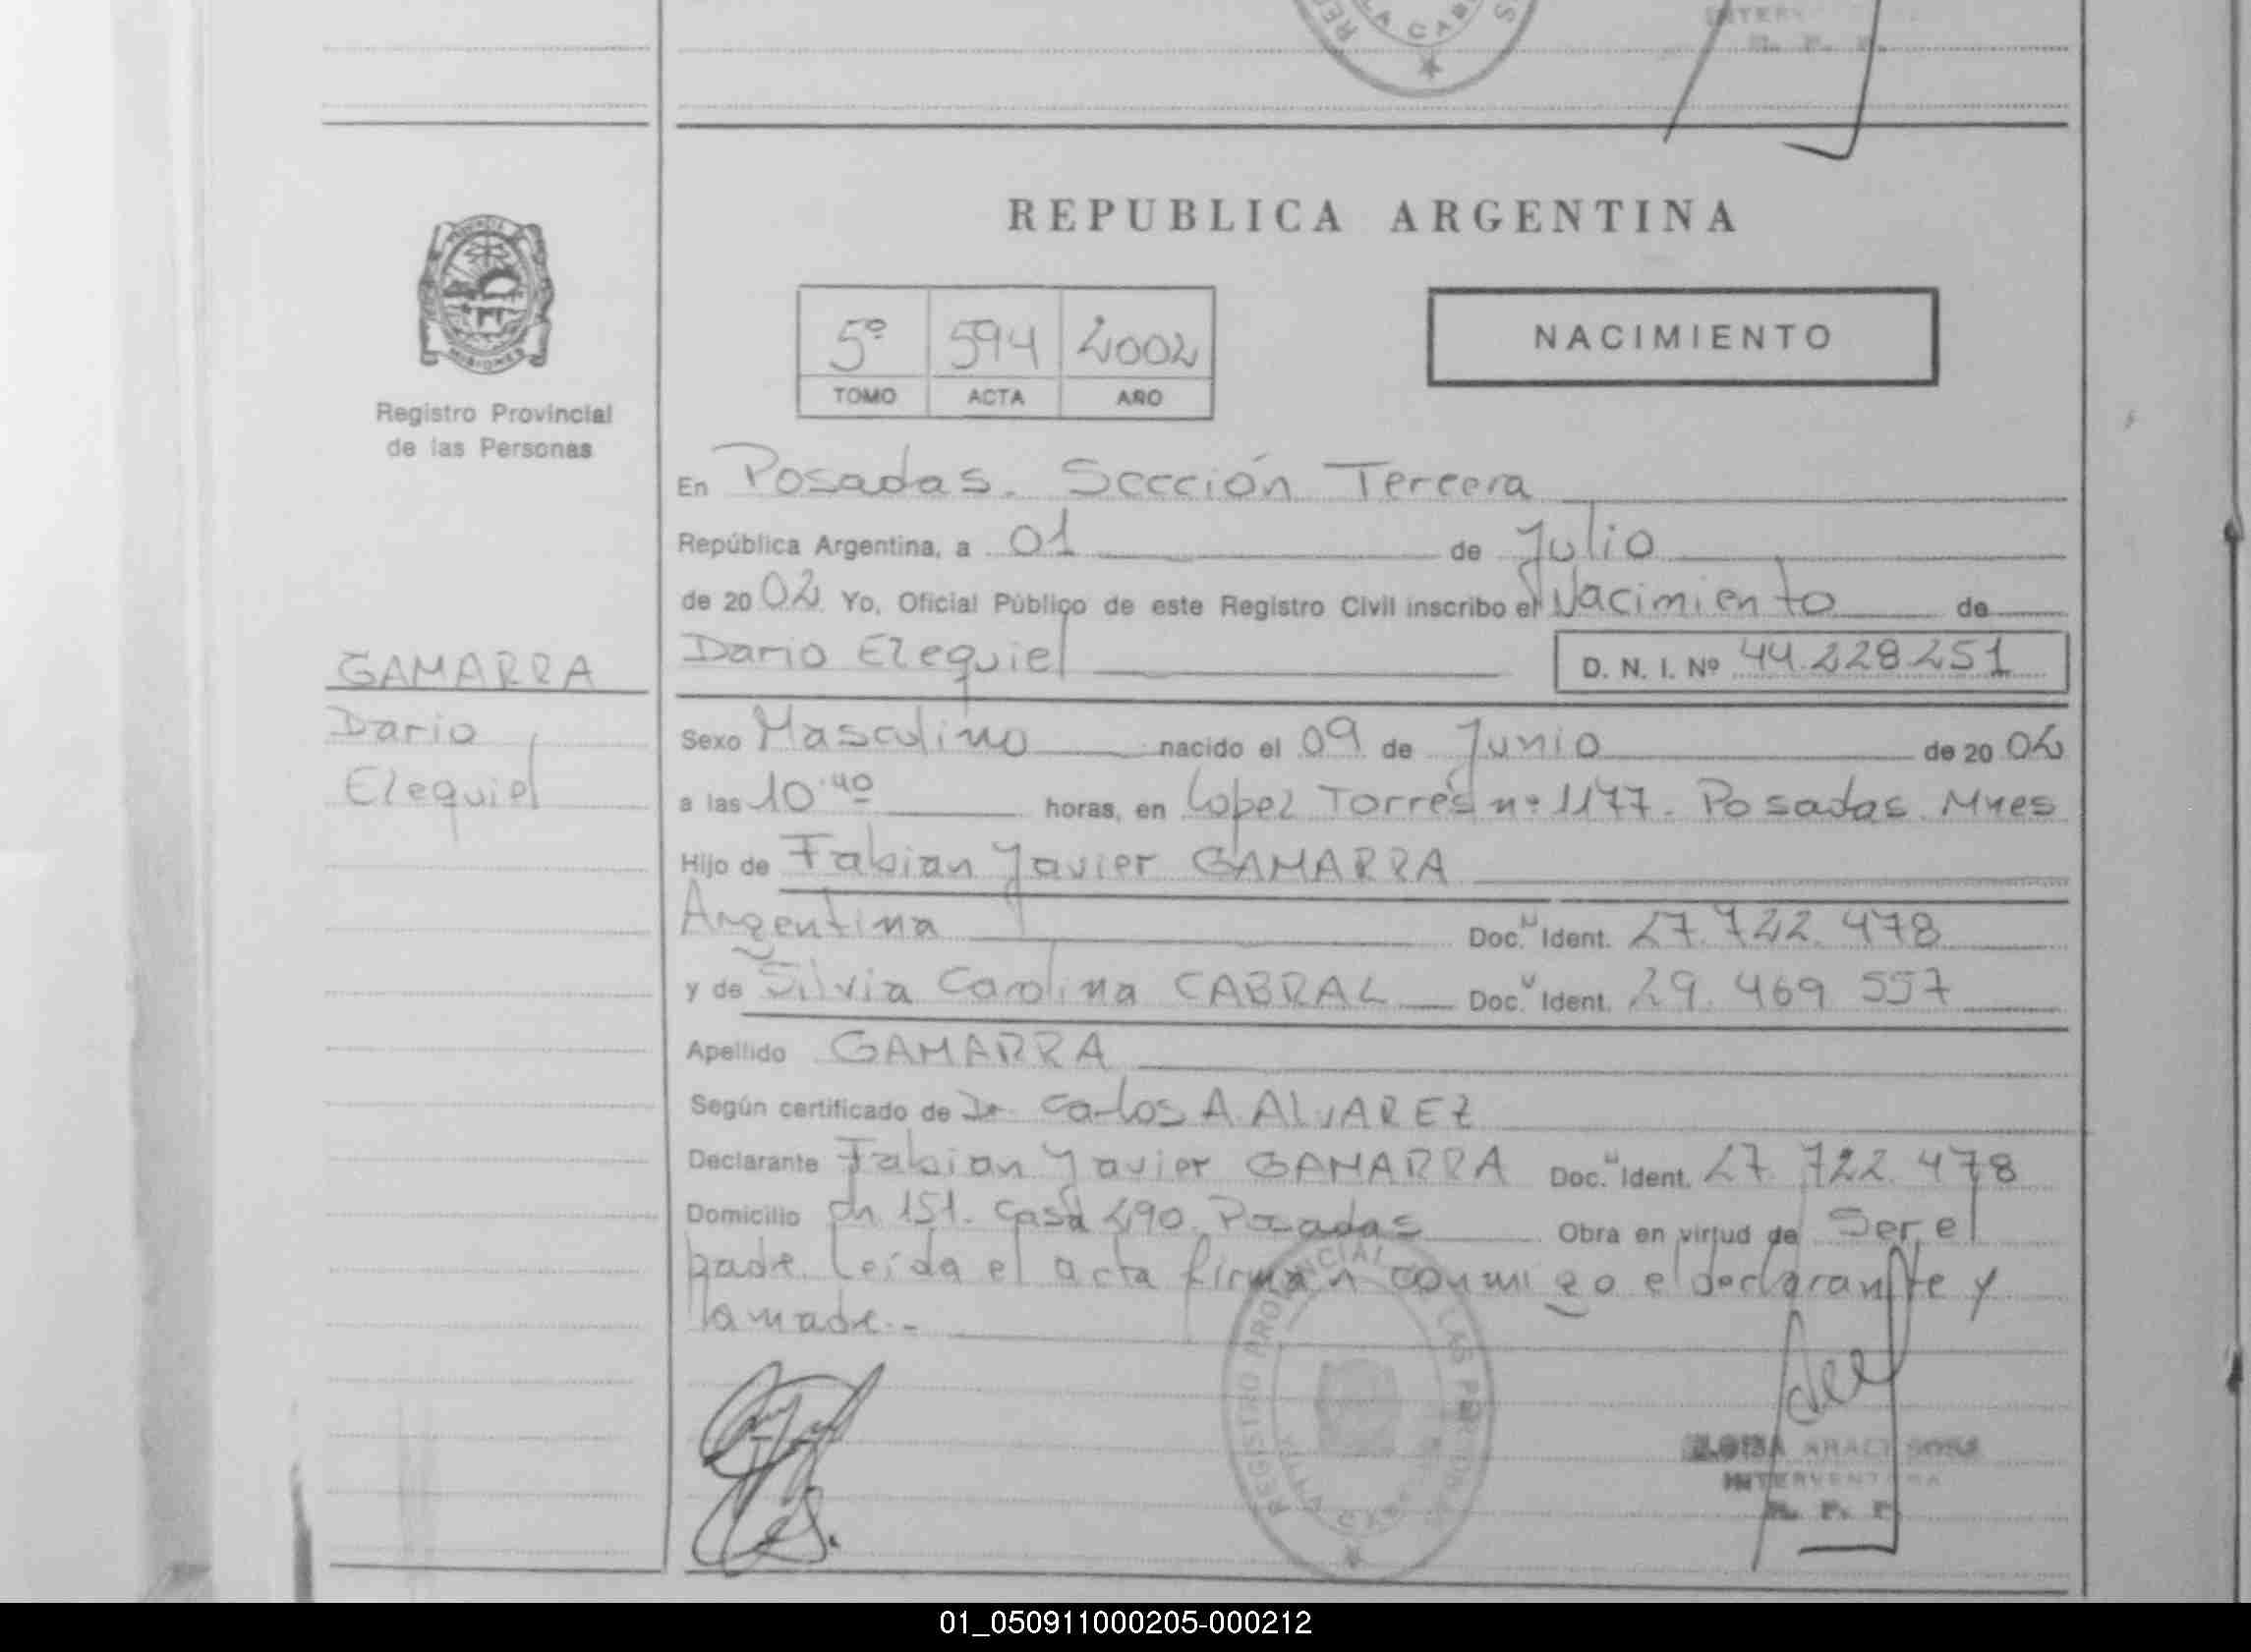 REPUBLICA ARGENTINA
5º 594 2002
TOMO ACTA AÑO
NACIMIENTO
MISIONES
Registro Provincial
de las Personas
GAMARRA
Dario
Ezequiel
En Posadas. Sección Tercera
República Argentina, a 01 de Julio
de 2002 Yo, Oficial Público de este Registro Civil inscribo el Nacimiento de
Dario Ezequiel D. N. I. Nº 44.228.251
Sexo Masculino nacido el 09 de Junio de 2002
a las 10.40 horas, en Lopez Torres nº 1177. Posadas. Mnes
Hijo de Fabian Javier GAMARRA
Argentina Doc. Ident. 27.722.478
y de Silvia Carolina CABRAL Doc. Ident. 29.469 557
Apellido GAMARRA
Según certificado de Dr. Carlos A. ALVAREZ
Declarante Fabian Javier GAMARRA Doc. Ident. 27.722.478
Domicilio Ch 151. Casa 290. Posadas Obra en virtud de Ser el
padre. Leída el acta firman conmigo el declarante y
la madre.-
REGISTRO PROVINCIAL DE LAS PERSONAS
INTERVENTORA
R. P. P.
01_050911000205-000212